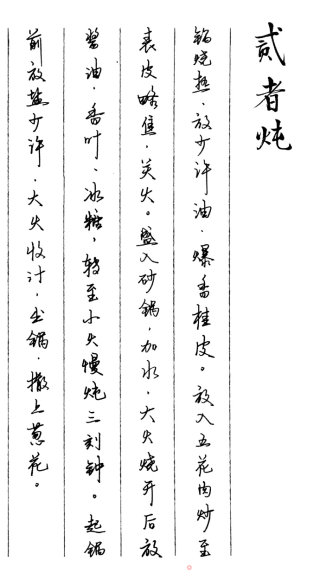 贰者炖
锅烧热，放少许油，爆香桂皮。放入五花肉炒至
表皮略焦，关火。盛入砂锅，加水，大火烧开后放
酱油、香叶、冰糖，转至小火慢炖三刻钟。起锅
前放盐少许，大火收汁，出锅，撒上葱花。